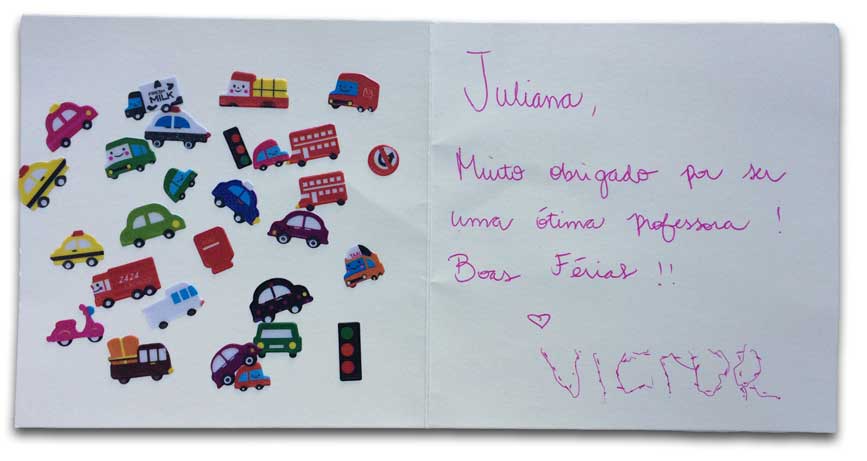 FRESH
MILK
TAXI
2424
Juliana,
Muito obrigado por ser
uma ótima professora !
Boas Férias !!
VICTOR